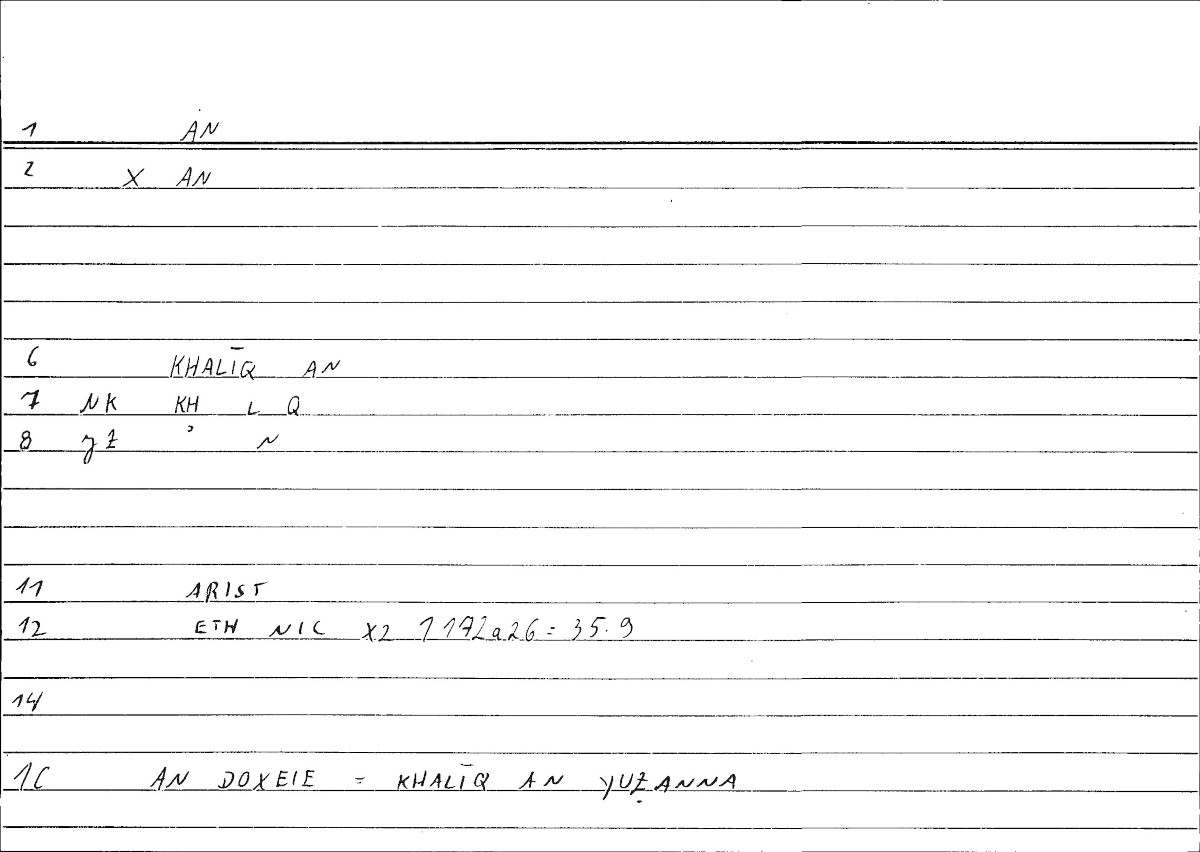 1 AN
2 X AN
6 KHALĪQ AN
7 NK KH L Q
8 yẒ ʾ N
11 ARIST
12 ETH NIC X2 1172a26 = 35.9
14
1C AN DOXEIE = KHALĪQ AN YUẒANNA